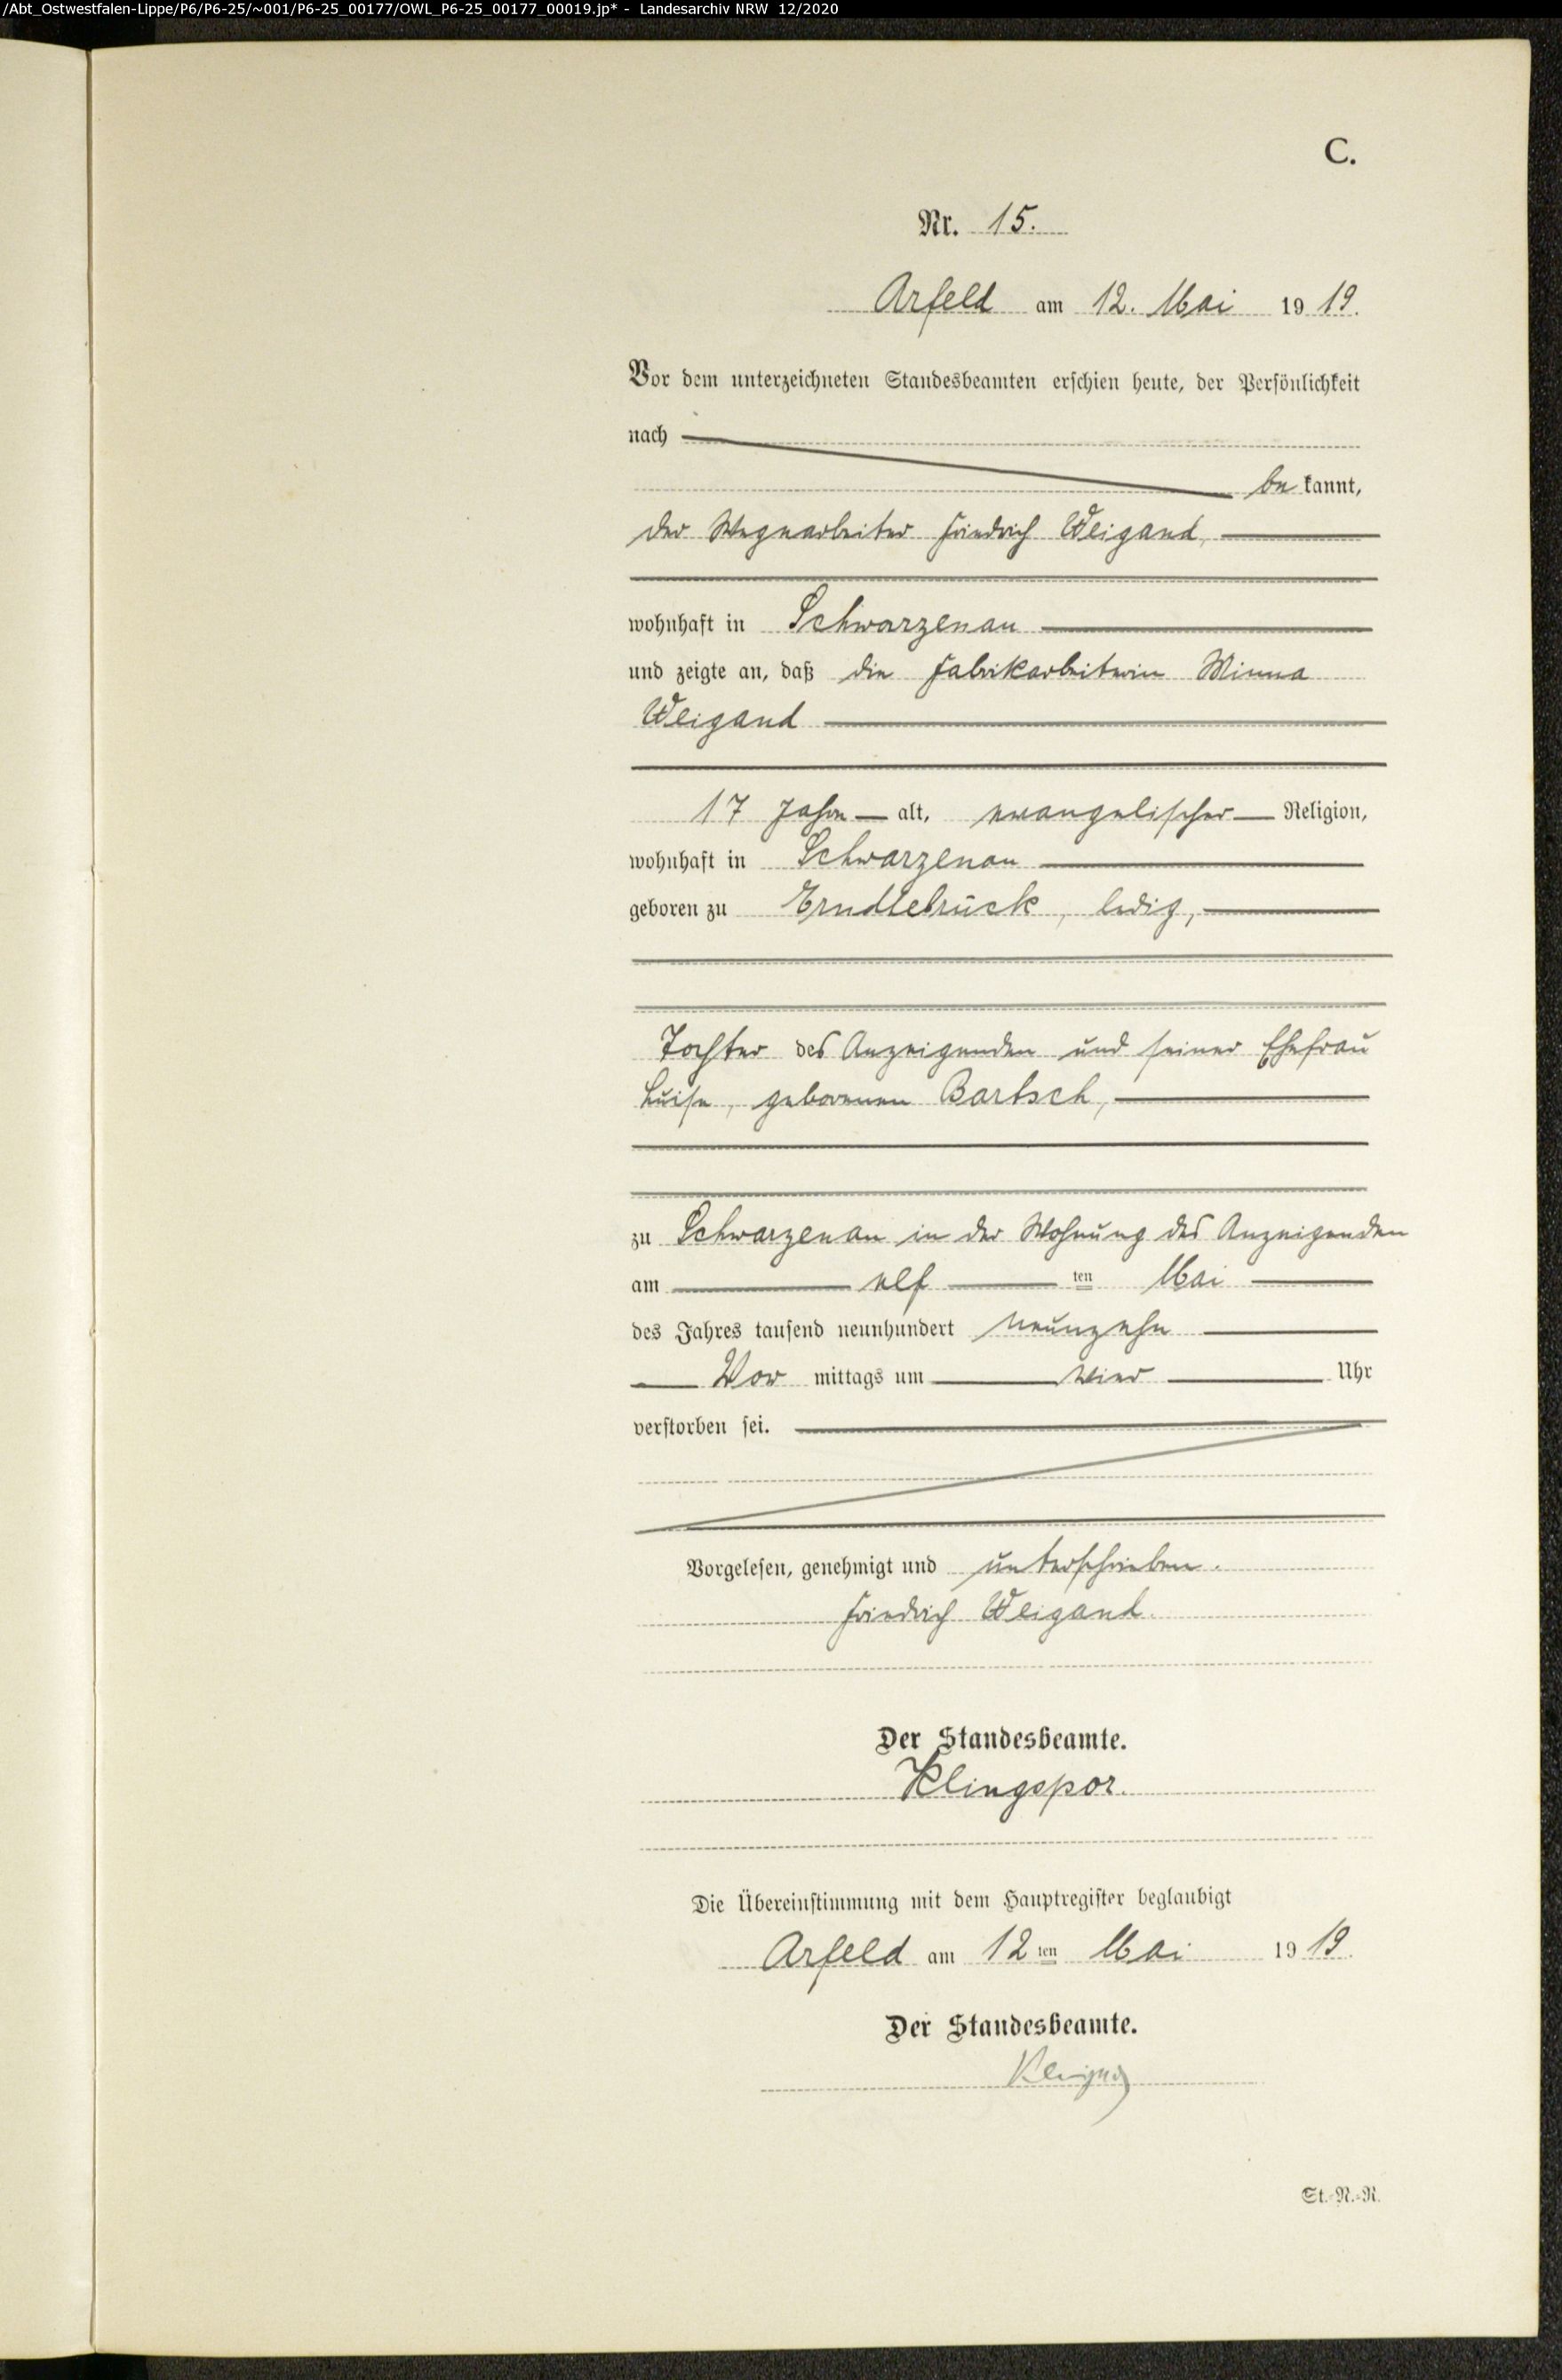 /Abt_Ostwestfalen-Lippe/P6/P6-25/~001/P6-25_00177/OWL_P6-25_00177_00019.jp* - Landesarchiv NRW 12/2020
C.
Nr. 15.
Arfeld am 12. Mai 1919.
Vor dem unterzeichneten Standesbeamten erschien heute, der Persönlichkeit
nach
bekannt,
der Wegearbeiter Friedrich Weigand,
wohnhaft in Schwarzenau
und zeigte an, daß die Fabrikarbeiterin Minna
Weigand
17 Jahre alt, evangelischer Religion,
wohnhaft in Schwarzenau
geboren zu Erndtebrück, ledig,
Tochter des Anzeigenden und seiner Ehefrau
Luise, geborenen Bartsch,
zu Schwarzenau in der Wohnung des Anzeigenden
am elf ten Mai
des Jahres tausend neunhundert neunzehn
Vor mittags um vier Uhr
verstorben sei.
Vorgelesen, genehmigt und unterschrieben.
Friedrich Weigand.
Der Standesbeamte.
Klingspor.
Die Übereinstimmung mit dem Hauptregister beglaubigt
Arfeld am 12ten Mai 1919.
Der Standesbeamte.
St.-R.-R.